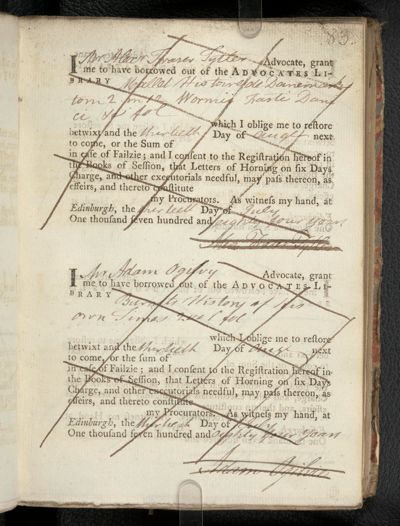 83.
I Mr Alexr Fraser Tytler Advocate, grant
me to have borrowed out of the ADVOCATES LI-
BRARY Histoire de Danemark
tom 2
fol
which I oblige me to restore
betwixt and the thertieth Day of Augt next
to come, or the Sum of
in case of Failzie; and I consent to the Registration hereof in
the Books of Session, that Letters of Horning on six Days
Charge, and other executorials needful, may pass thereon, as
effeirs, and thereto constitute
my Procurators. As witness my hand, at
Edinburgh, the thertieth Day of July
One thousand seven hundred and eighty four years
I Mr. Adam Ogilvy Advocate, grant
me to have borrowed out of the ADVOCATES LI-
BRARY Burnets History of his
own Times fol
which I oblige me to restore
betwixt and the thirtieth Day of Augt next
to come, or the sum of
in case of Failzie; and I consent to the Registration hereof in
the Books of Session, that Letters of Horning on six Days
Charge, and other executorials needful, may pass thereon, as
effeirs, and thereto constitute
my Procurators. As witness my hand, at
Edinburgh, the thirtieth Day of July
One thousand seven hundred and eighty four years
Adam Ogilvy